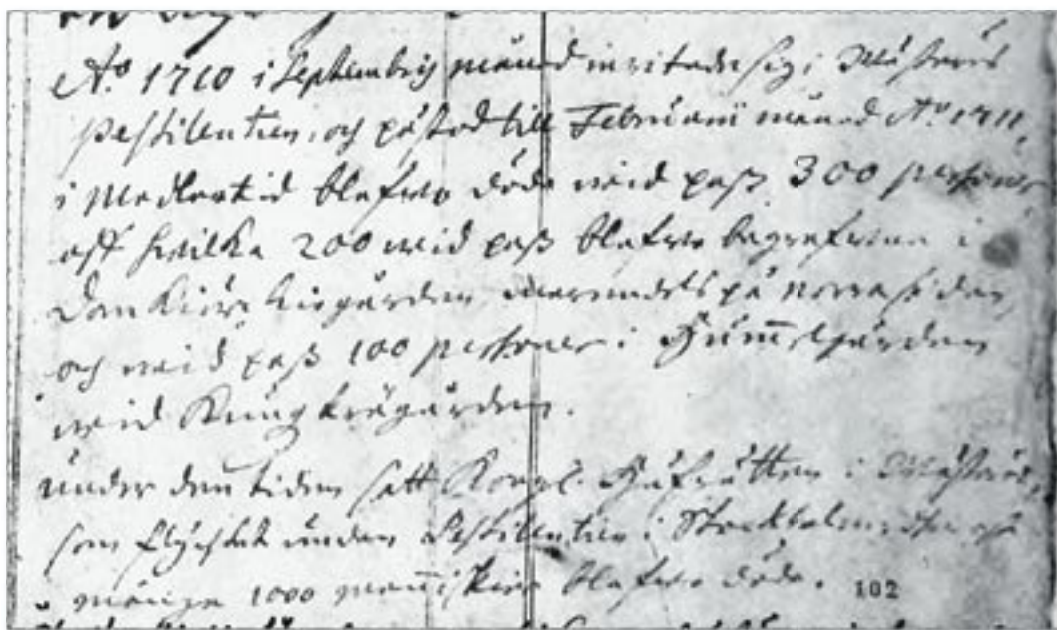 A:o 1710 i Septembris månad inritade sig i Wästerås
Pestilentien, och påstod till Februarii månad A:o 1711,
i medlertid blefwo döde wid pass 300 personer
aff hwilka 200 wid pass blefwo begrafwna i
den kiörkiogården, norra sidan
och wid pass 100 personer i Hummelgården
wid Kungzträgården.
under den tiden satt Kongl. Håfrätten i Wästerås,
som flychtat undan Pestilentien i Stockholm, der
många 1000 menniskior blefwo döde.
102